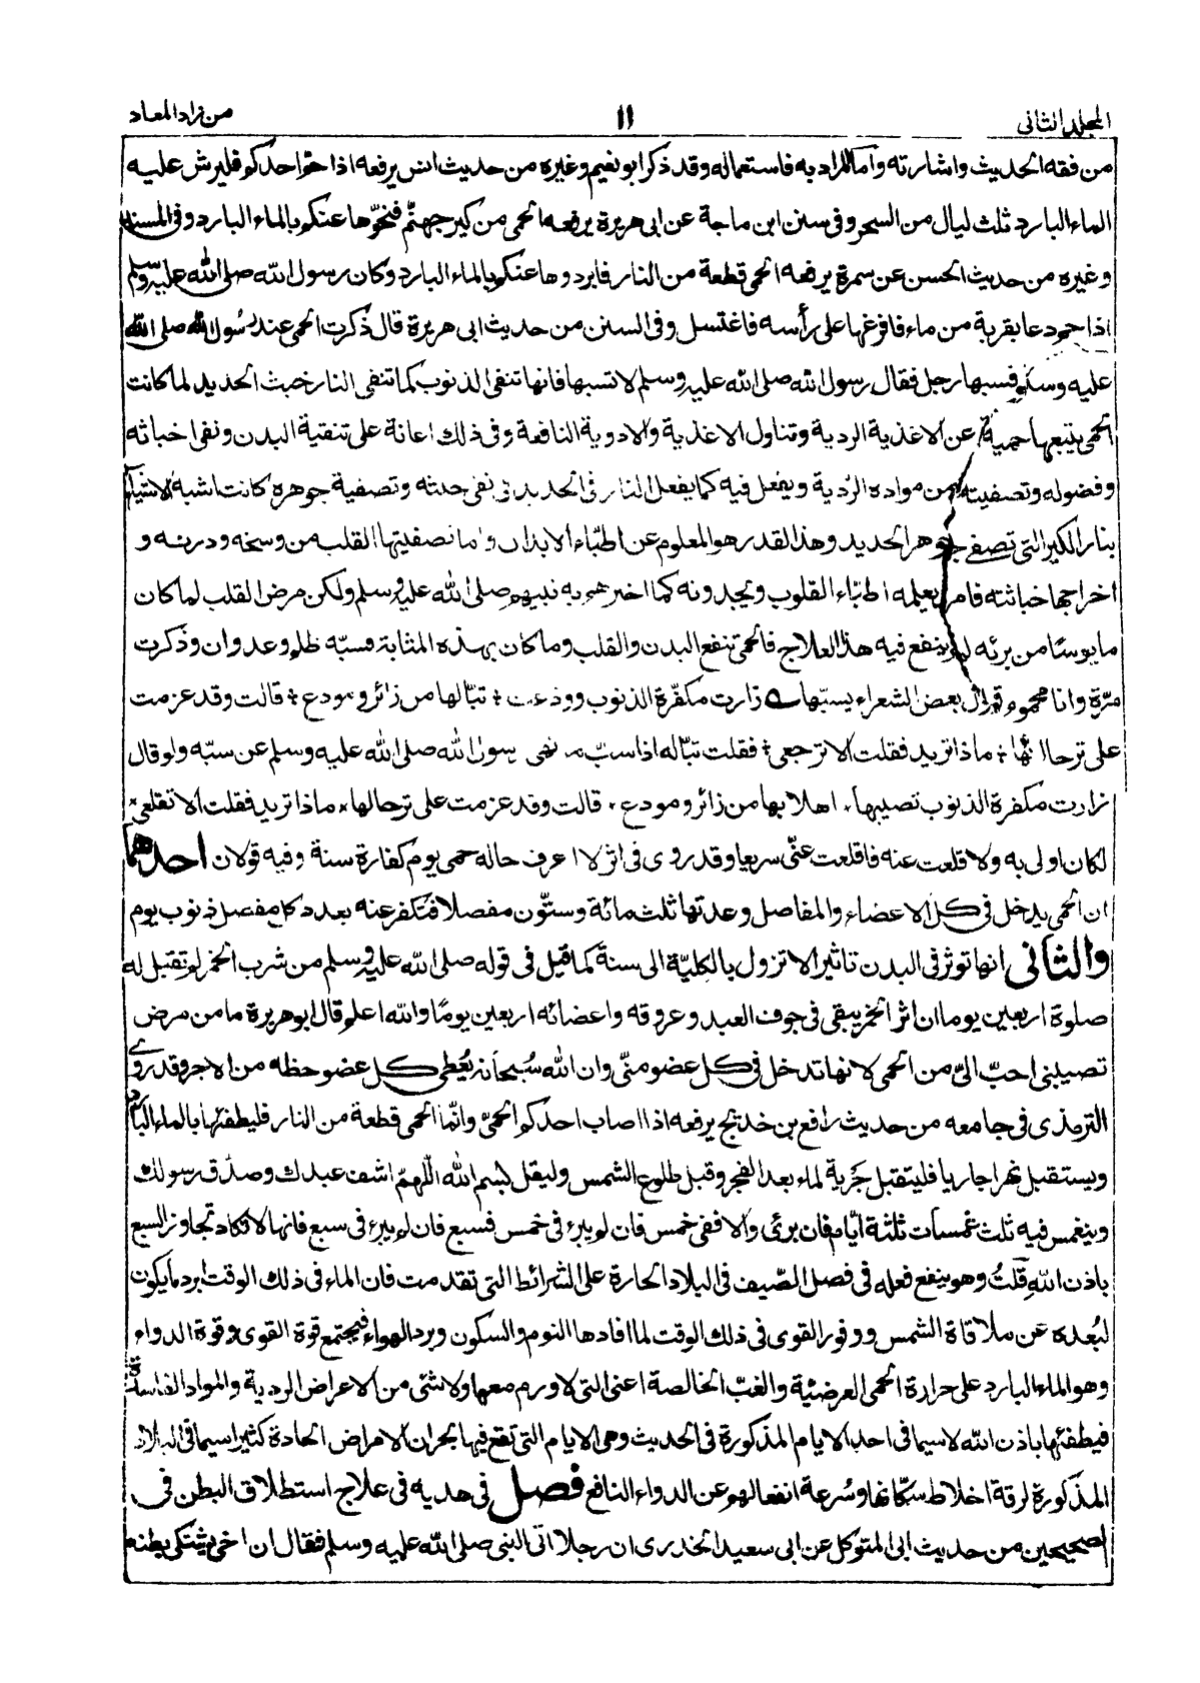 المجلد الثانى
١١
من زاد المعاد
من فقه الحديث واشارته واما المراد به فاستعماله وقد ذكر ابو نعيم وغيره من حديث انس يرفعه اذا حمّ احدكم فليرش عليه
الماء البارد ثلث ليال من السحر وفى سنن ابن ماجة عن ابى هريرة يرفعه الحمى من كير جهنم فنحّوها عنكم بالماء البارد وفى المسند
وغيره من حديث الحسن عن سمرة يرفعه الحمى قطعة من النار فابردوها عنكم بالماء البارد وكان رسول الله صلى الله عليه وسلم
اذا حم دعا بقربة من ماء فافرغها على رأسه فاغتسل وفى السنن من حديث ابى هريرة قال ذكرت الحمى عند رسول الله صلى الله
عليه وسلم فسبها رجل فقال رسول الله صلى الله عليه وسلم لا تسبها فانها تنفى الذنوب كما تنفى النار خبث الحديد لما كانت
الحمى يتبعها حمية عن الاغذية الردية وتناول الاغذية والادوية النافعة وفى ذلك اعانة على تنقية البدن ونفى اخباثه
وفضوله وتصفيته من مواده الردية ويفعل فيه كما يفعل النار فى الحديد فى نفى خبثه وتصفية جوهره كانت اشبه الاشياء
بنار الكير التى تصفى جوهر الحديد وهذا القدر هو المعلوم عن اطبّاء الابدان واما تصفيتها القلب من وسخه ودرنه و
اخراجها خباثته فامر يعلمه اطبّاء القلوب ويجدونه كما اخبرهم به نبيهم صلى الله عليه وسلم ولكن مرض القلب لما كان
مايوسًا من برئه لم ينفع فيه هذا العلاج فالحمى تنفع البدن والقلب وما كان بهذه المثابة فسبّه ظلم وعدوان وذكرت
مرّة وانا محموم قول بعض الشعراء يسبّها زارت مكفّرة الذنوب وودعت ؛ تبّا لها من زائر ومودع ؛ قالت وقد عزمت
على ترحالها ؛ ماذا تريد فقلت الا ترجعى ؛ فقلت تبّا له اذا سبّ ما نهى رسول الله صلى الله عليه وسلم عن سبّه ولو قال
زارت مكفرة الذنوب لصبها، اهلا بها من زائر ومودع، قالت وقد عزمت على ترحالها، ماذا تريد فقلت الا تقلعى
لكان اولى به ولا قلعت عنه فاقلعت عنّى سريعا وقد روى فى اثر لا اعرف حاله حمى يوم كفارة سنة وفيه قولان احدهما
ان الحمى يدخل فى كل الاعضاء والمفاصل وعدتها ثلث مائة وستّون مفصلا فتكفر عنه بعدد كل مفصل ذنوب يوم
والثانى انها توثر فى البدن تاثيرا لا تزول بالكليّة الى سنة كما قيل فى قوله صلى الله عليه وسلم من شرب الخمر لم تقبل له
صلوة اربعين يوما ان اثر الخمر يبقى فى جوف العبد وعروقه واعضائه اربعين يومًا والله اعلم قال ابو هريرة ما من مرض
تصيبنى احبّ الىّ من الحمى لانها تدخل فى كل عضو منّى وان الله سُبحانه يُعطى كل عضو حظه من الاجر وقد روى
الترمذى فى جامعه من حديث رافع بن خديج يرفعه اذا اصاب احدكم الحمىّ وانّما الحمى قطعة من النار فليطفئها بالماء البارد
ويستقبل نهرا جاريا فليتقبل جَرية لماء بعد الفجر وقبل طلوع الشمس وليقل بسم الله اللّهمّ اشف عبدك وصدّق رسولك
وينغمس فيه ثلث غمسات ثلثة ايّام فان برئ والا ففى خمس فان لم يبرء فى خمس فسبع فان لم يبرء فى سبع فانها لا تكاد تجاوز السبع
باذن الله قلتُ وهو ينفع فعله فى فصل الصّيف فى البلاد الحارة على الشرائط التى تقدمت فان الماء فى ذلك الوقت ابرد ما يكون
لبُعده عن ملاقاة الشمس ووفور القوى فى ذلك الوقت لما افادها النوم والسكون وبرد الهواء فيجتمع قوة القوى وقوة الدواء
وهو الماء البارد على حرارة الحمى العرضيّة والغبّ الخالصة اعنى التى لا ورم معها ولا شئ من الاعراض الردية والمواد الفاسدة
فيطفئها باذن الله لا سيما فى احد الايام المذكورة فى الحديث وهى الايام التى تقع فيها بحران الامراض الحادة كثيرا سيما فى البلاد
المذكورة لرقة اخلاط سكّانها وسُرعة انفعالهم عن الدواء النافع فصل فى هديه فى علاج استطلاق البطن فى
الصحيحين من حديث ابى المتوكل عن ابى سعيد الخدرى ان رجلا اتى النبى صلى الله عليه وسلم فقال ان اخى يشتكى بطنه